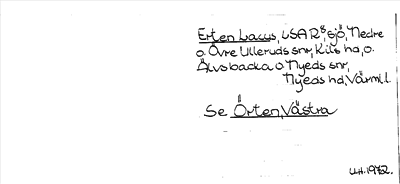 Erten Lacus, USAR⁸, sjö, Nedre
o. Övre Ulleruds snr, Kils hd, o.
Älvsbacka o Nyeds snr,
Nyeds hd, Värml.
Se Örten, Västra
U.H. 1972.